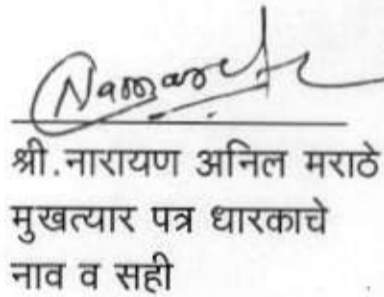 श्री.नारायण अनिल मराठे
मुखत्यार पत्र धारकाचे
नाव व सही